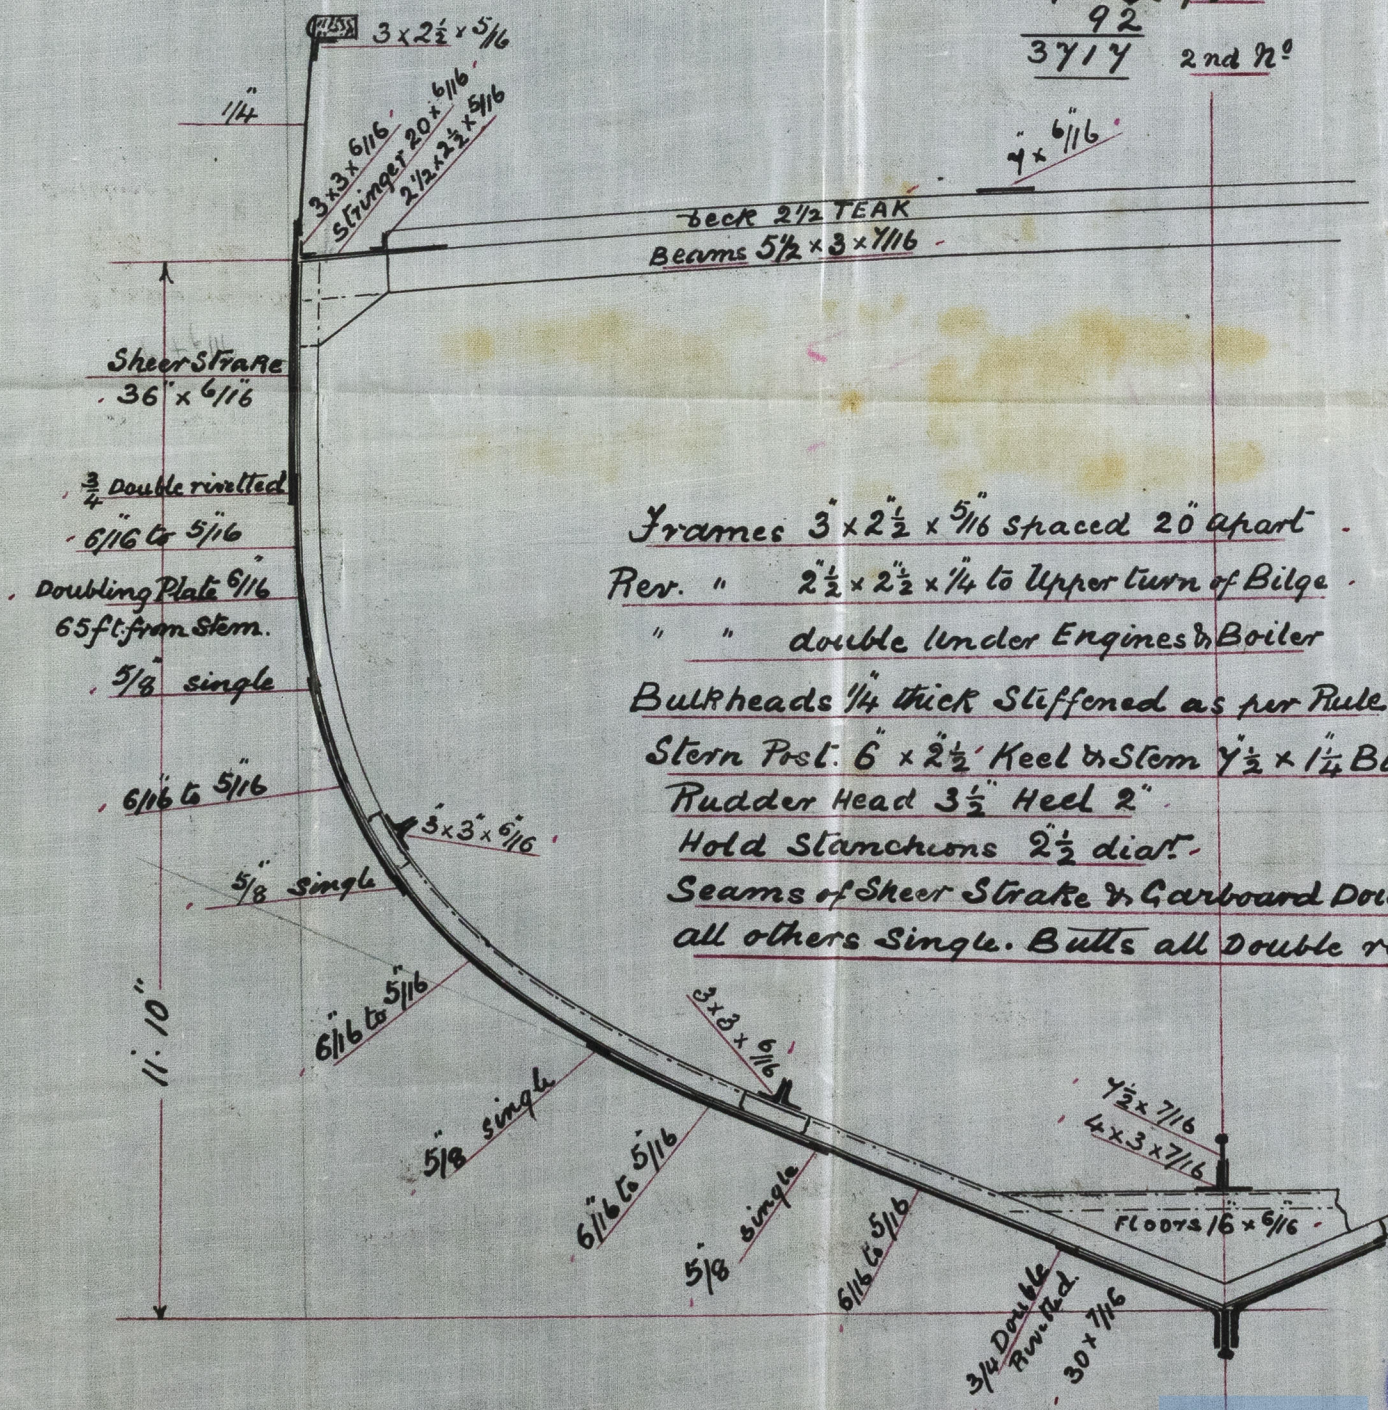 3 x 2½ x 5/16
92
3717 2nd No
1/4"
3 x 3 x 6/16"
Stringer 20 x 6/16"
2 1/2 x 2 1/2 x 5/16
7 x 6/16"
Deck 2 1/2 TEAK
Beams 5 1/2 x 3 x 7/16
Sheer Strake
36" x 6/16"
3/4 Double rivetted
6/16" to 5/16"
Doubling Plate 6/16"
65 ft. from Stem.
5/8" single
6/16" to 5/16"
3" x 3" x 6/16"
5/8" single
11. 10"
6/16" to 5/16"
5/8" single
6/16" to 5/16"
3 x 3 x 6/16"
5/8 single
6/16 to 5/16
3/4 Double
Rivetted.
30 x 7/16
7½ x 7/16
4 x 3 x 7/16
Floors 16" x 6/16"
Frames 3" x 2½" x 5/16" spaced 20" apart
Rev. " 2½" x 2½" x 1/4 to Upper turn of Bilge
" " double Under Engines & Boiler
Bulkheads 1/4" thick Stiffened as per Rule
Stern Post. 6" x 2½" Keel & Stem 7½" x 1¼"
Rudder Head 3½" Heel 2"
Hold Stanchions 2½" diar.
Seams of Sheer Strake & Garboard
all others Single. Butts all Double